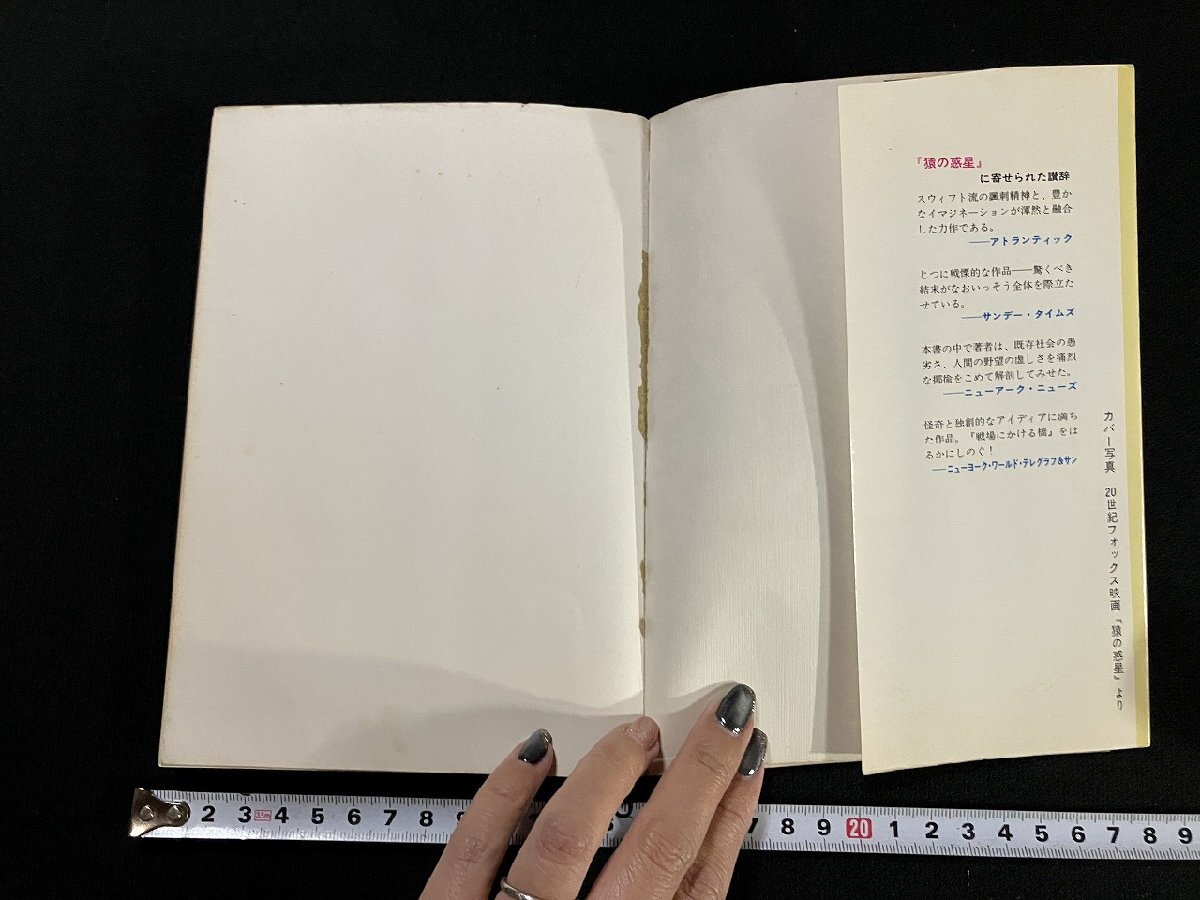 『猿の惑星』
に寄せられた讃辞
スウィフト流の諷刺精神と、豊か
なイマジネーションが渾然と融合
した力作である。
――アトランティック
じつに戦慄的な作品――驚くべき
結末がなおいっそう全体を際立た
せている。
――サンデー・タイムズ
本書の中で著者は、既存社会の愚
劣さ、人間の野望の虚しさを痛烈
な揶揄をこめて解剖してみせた。
――ニューアーク・ニューズ
怪奇と独創的なアイディアに満ち
た作品。『戦場にかける橋』をは
るかにしのぐ!
――ニューヨーク・ワールド・テレグラフ&サン
カバー写真 20世紀フォックス映画『猿の惑星』より
2 3 3.5m 4 5 6 7 8 7 8 9 20 1 2 3 4 5 6 7 8 9